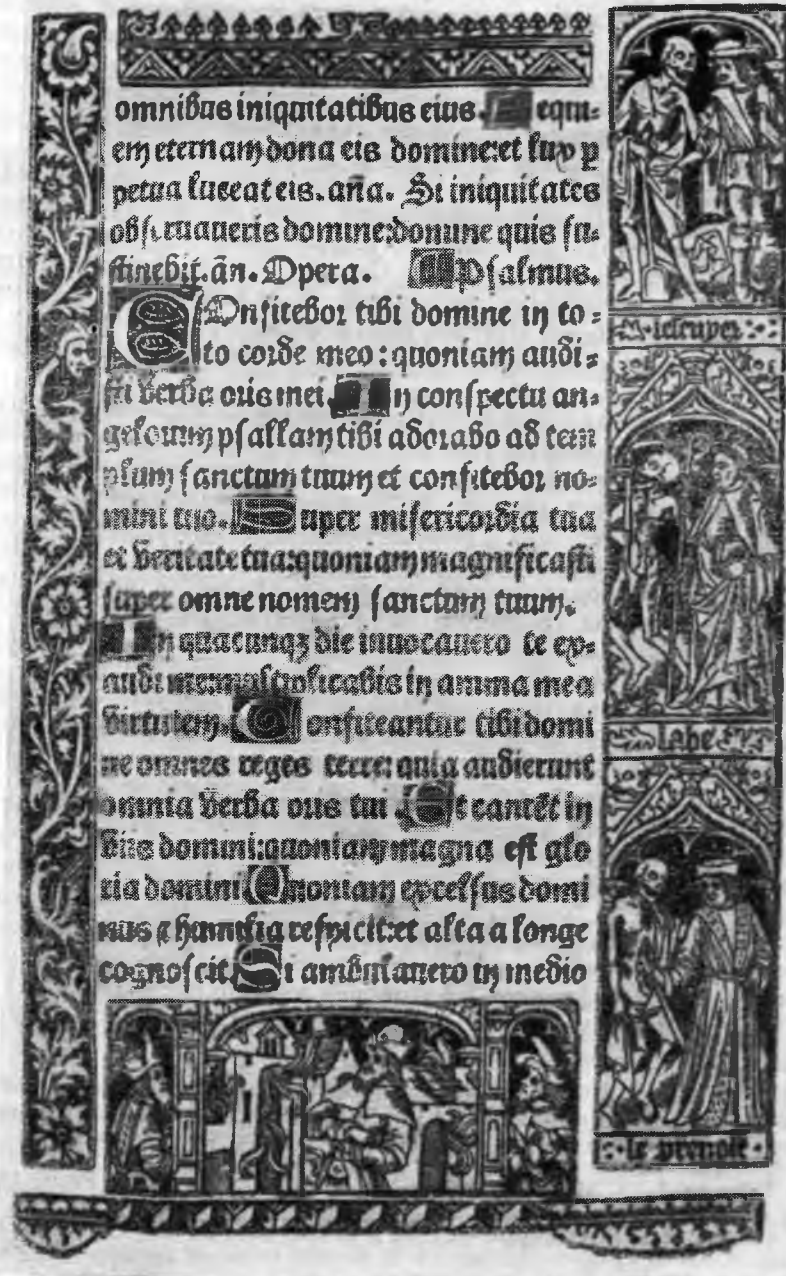 omnibus iniquitatibus eius. Requi-
em eternam dona eis domine:et lux p
petua luceat eis. aña. Si iniquitates
obseruaueris domine:domine quis su-
stinebit. añ. Opera. Psalmus.
COnfitebor tibi domine in to-
to corde meo: quoniam audi-
sti verba oris mei. In conspectu an-
gelorum psallam tibi adorabo ad tem
plum sanctum tuum et confitebor no-
mini tuo. Super misericordia tua
et veritate tua:quoniam magnificasti
super omne nomen sanctum tuum.
In quacunqꝫ die inuocauero te ex-
audi me:multiplicabis in anima mea
virtutem. Confiteantur tibi domi
ne omnes reges terre: quia audierunt
omnia verba oris tui. Et cantēt in
viis domini:quoniam magna est glo
ria domini. Quoniam excelsus domi
nus et humilia respicit:et alta a longe
cognoscit. Si ambulauero in medio
lescuyer
labe
le preuost